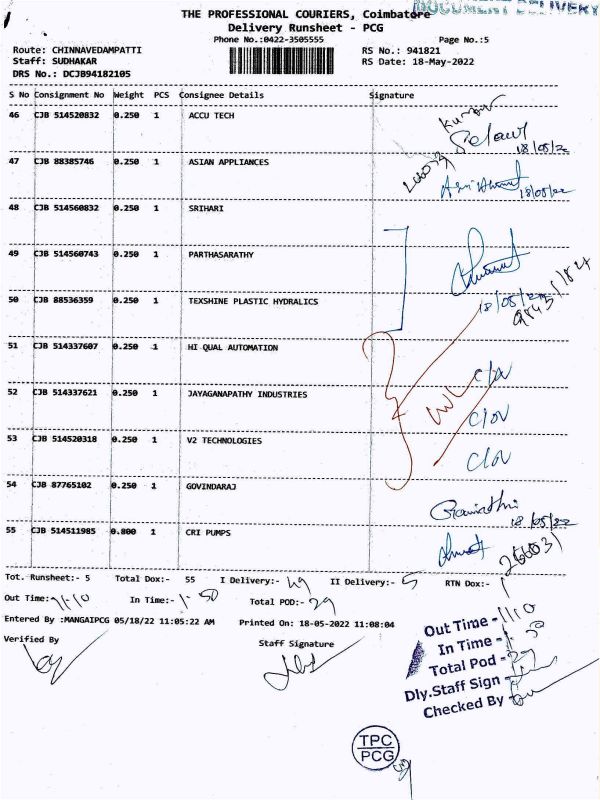 THE PROFESSIONAL COURIERS, Coimbatore
DOCUMENT DELIVERY
Delivery Runsheet - PCG
Phone No.:0422-3505555 Page No.:5
Route: CHINNAVEDAMPATTI RS No.: 941821
Staff: SUDHAKAR RS Date: 18-May-2022
DRS No.: DCJB94182105
S No Consignment No Weight PCS Consignee Details Signature
46 CJB 514520832 0.250 1 ACCU TECH
18/05/22
47 CJB 88385746 0.250 1 ASIAN APPLIANCES
18/05/22
48 CJB 514560832 0.250 1 SRIHARI
49 CJB 514560743 0.250 1 PARTHASARATHY
50 CJB 88536359 0.250 1 TEXSHINE PLASTIC HYDRALICS
51 CJB 514337607 0.250 1 HI QUAL AUTOMATION
52 CJB 514337621 0.250 1 JAYAGANAPATHY INDUSTRIES
53 CJB 514520318 0.250 1 V2 TECHNOLOGIES
54 CJB 87765102 0.250 1 GOVINDARAJ
18/05/22
55 CJB 514511985 0.800 1 CRI PUMPS
Tot. Runsheet:- 5 Total Dox:- 55 I Delivery:- 49 II Delivery:- 5 RTN Dox:- 1
Out Time:- 11:10 In Time:- 1-50 Total POD:- 29
Entered By :MANGAIPCG 05/18/22 11:05:22 AM Printed On: 18-05-2022 11:08:04
Verified By Staff Signature
Out Time - 11:10
In Time -
Total Pod - 29
Dly.Staff Sign -
Checked By -
TPC
PCG